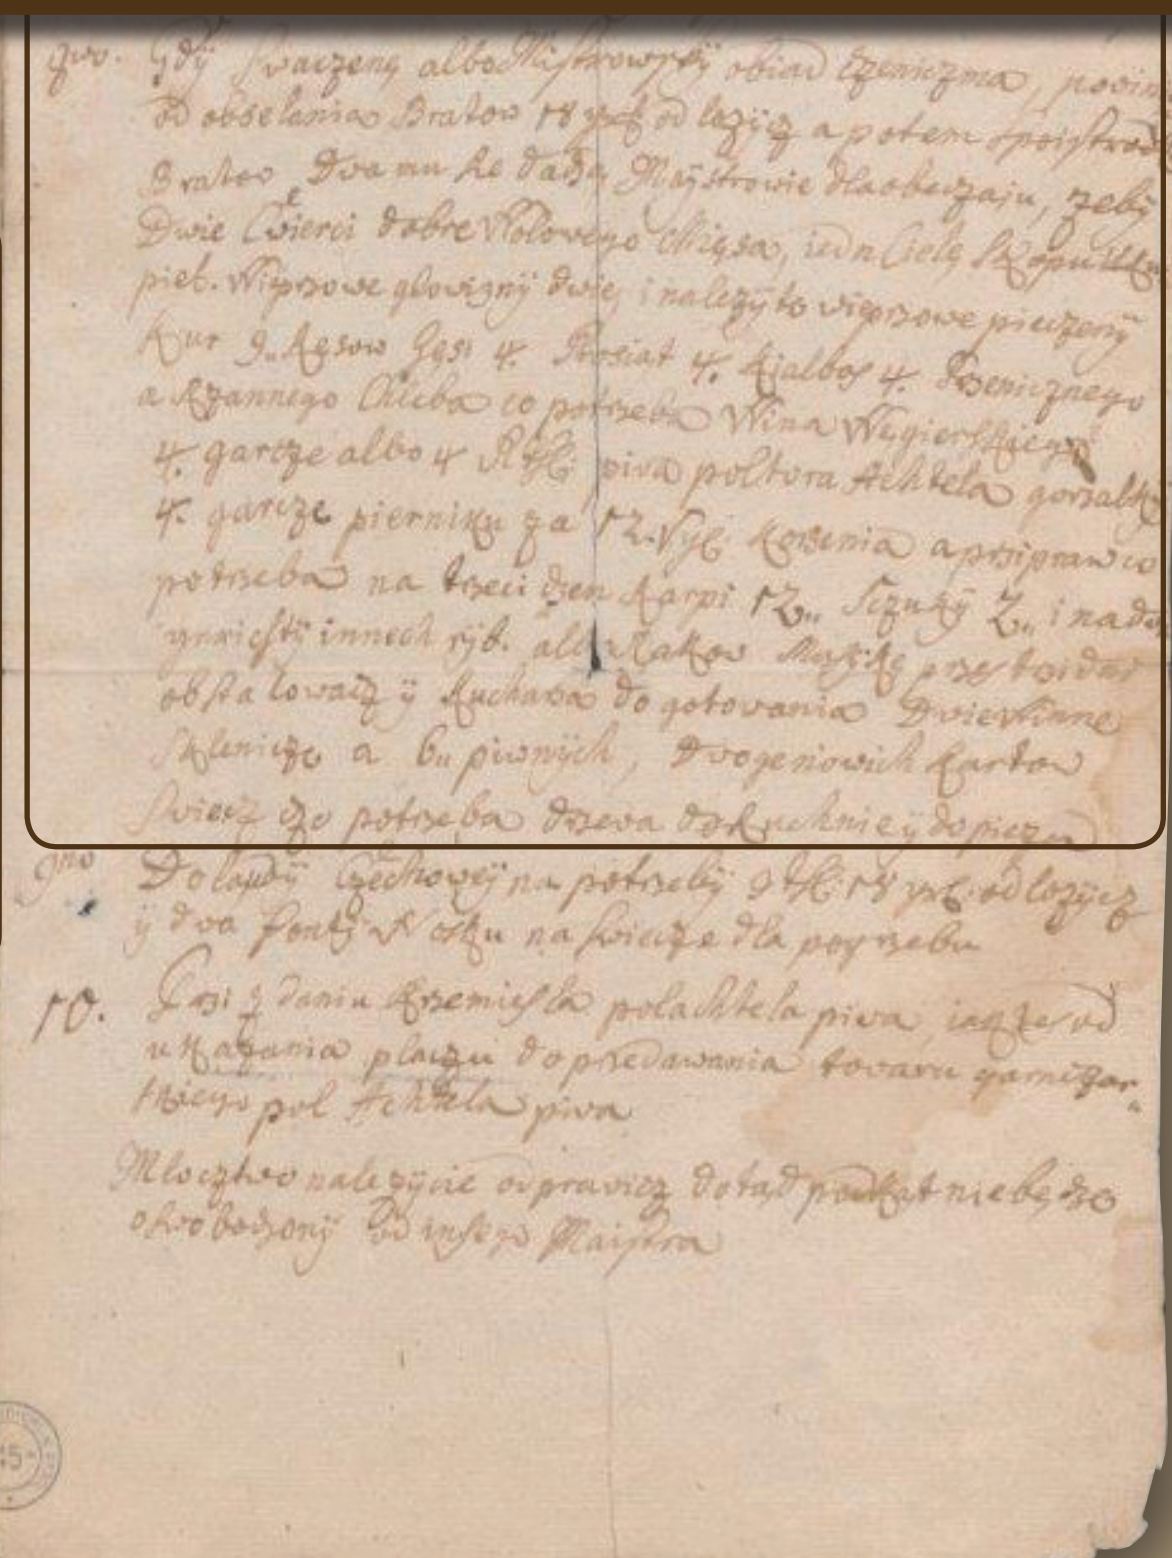 Gdÿ Swaczeną albo Mistrowskÿ obiad czenicz ma, powin
od obsełania Bratow 18 grł od lozÿcz a potem
Bratow, Dwa mu se dadzą Maÿstrowie dla obaczaju, zebÿ
Dwie Cwierci dobre Wołowego Mięsa, iedn Cielę
piet. Wieprzowe głowiznÿ dwie, i należÿte wieprzowe pieczenÿ
Kur 9. Kęsow Gęsi 4. Prosiat 4. Kiałbas 4. Pszenicznego
a Rżannego Chleba co potrzeba Wina Węgierskiego
4. garcze albo 4 Rtłł: piwa poltora Achtela gorzałki
4. garcze pierniku za 12. Kozenia a przipraw co
potrzeba na trzeci dzen Karpi 12,, Sczukÿ 2,, i nad
innech rÿb. albo Rakow Muzÿkę przes trzi dni
obstalowacz ÿ Kucharza do gotowania Dwie Winne
Sklenicze a 6,, piwnÿch, Karton
Swiecz czo potrzeba drzewa do Kuchnie ÿ do piecza
9no Do ladÿ Czechoweÿ na potrzebÿ 9 tł: 18 grł: od lozÿcz
ÿ dwa fontÿ Wosku na swiecze dla pogrzebu
10. Przi zdaniu Rzemiesła pol achtela piwa, iakze od
ukazania placzu do przedawania towaru garnczar,,
skiego pol Achtela piwa
Mlocztwo nalezÿcie odprawicz dotąd pokąt nie będze
oswobodzonÿ od inszego Maistra